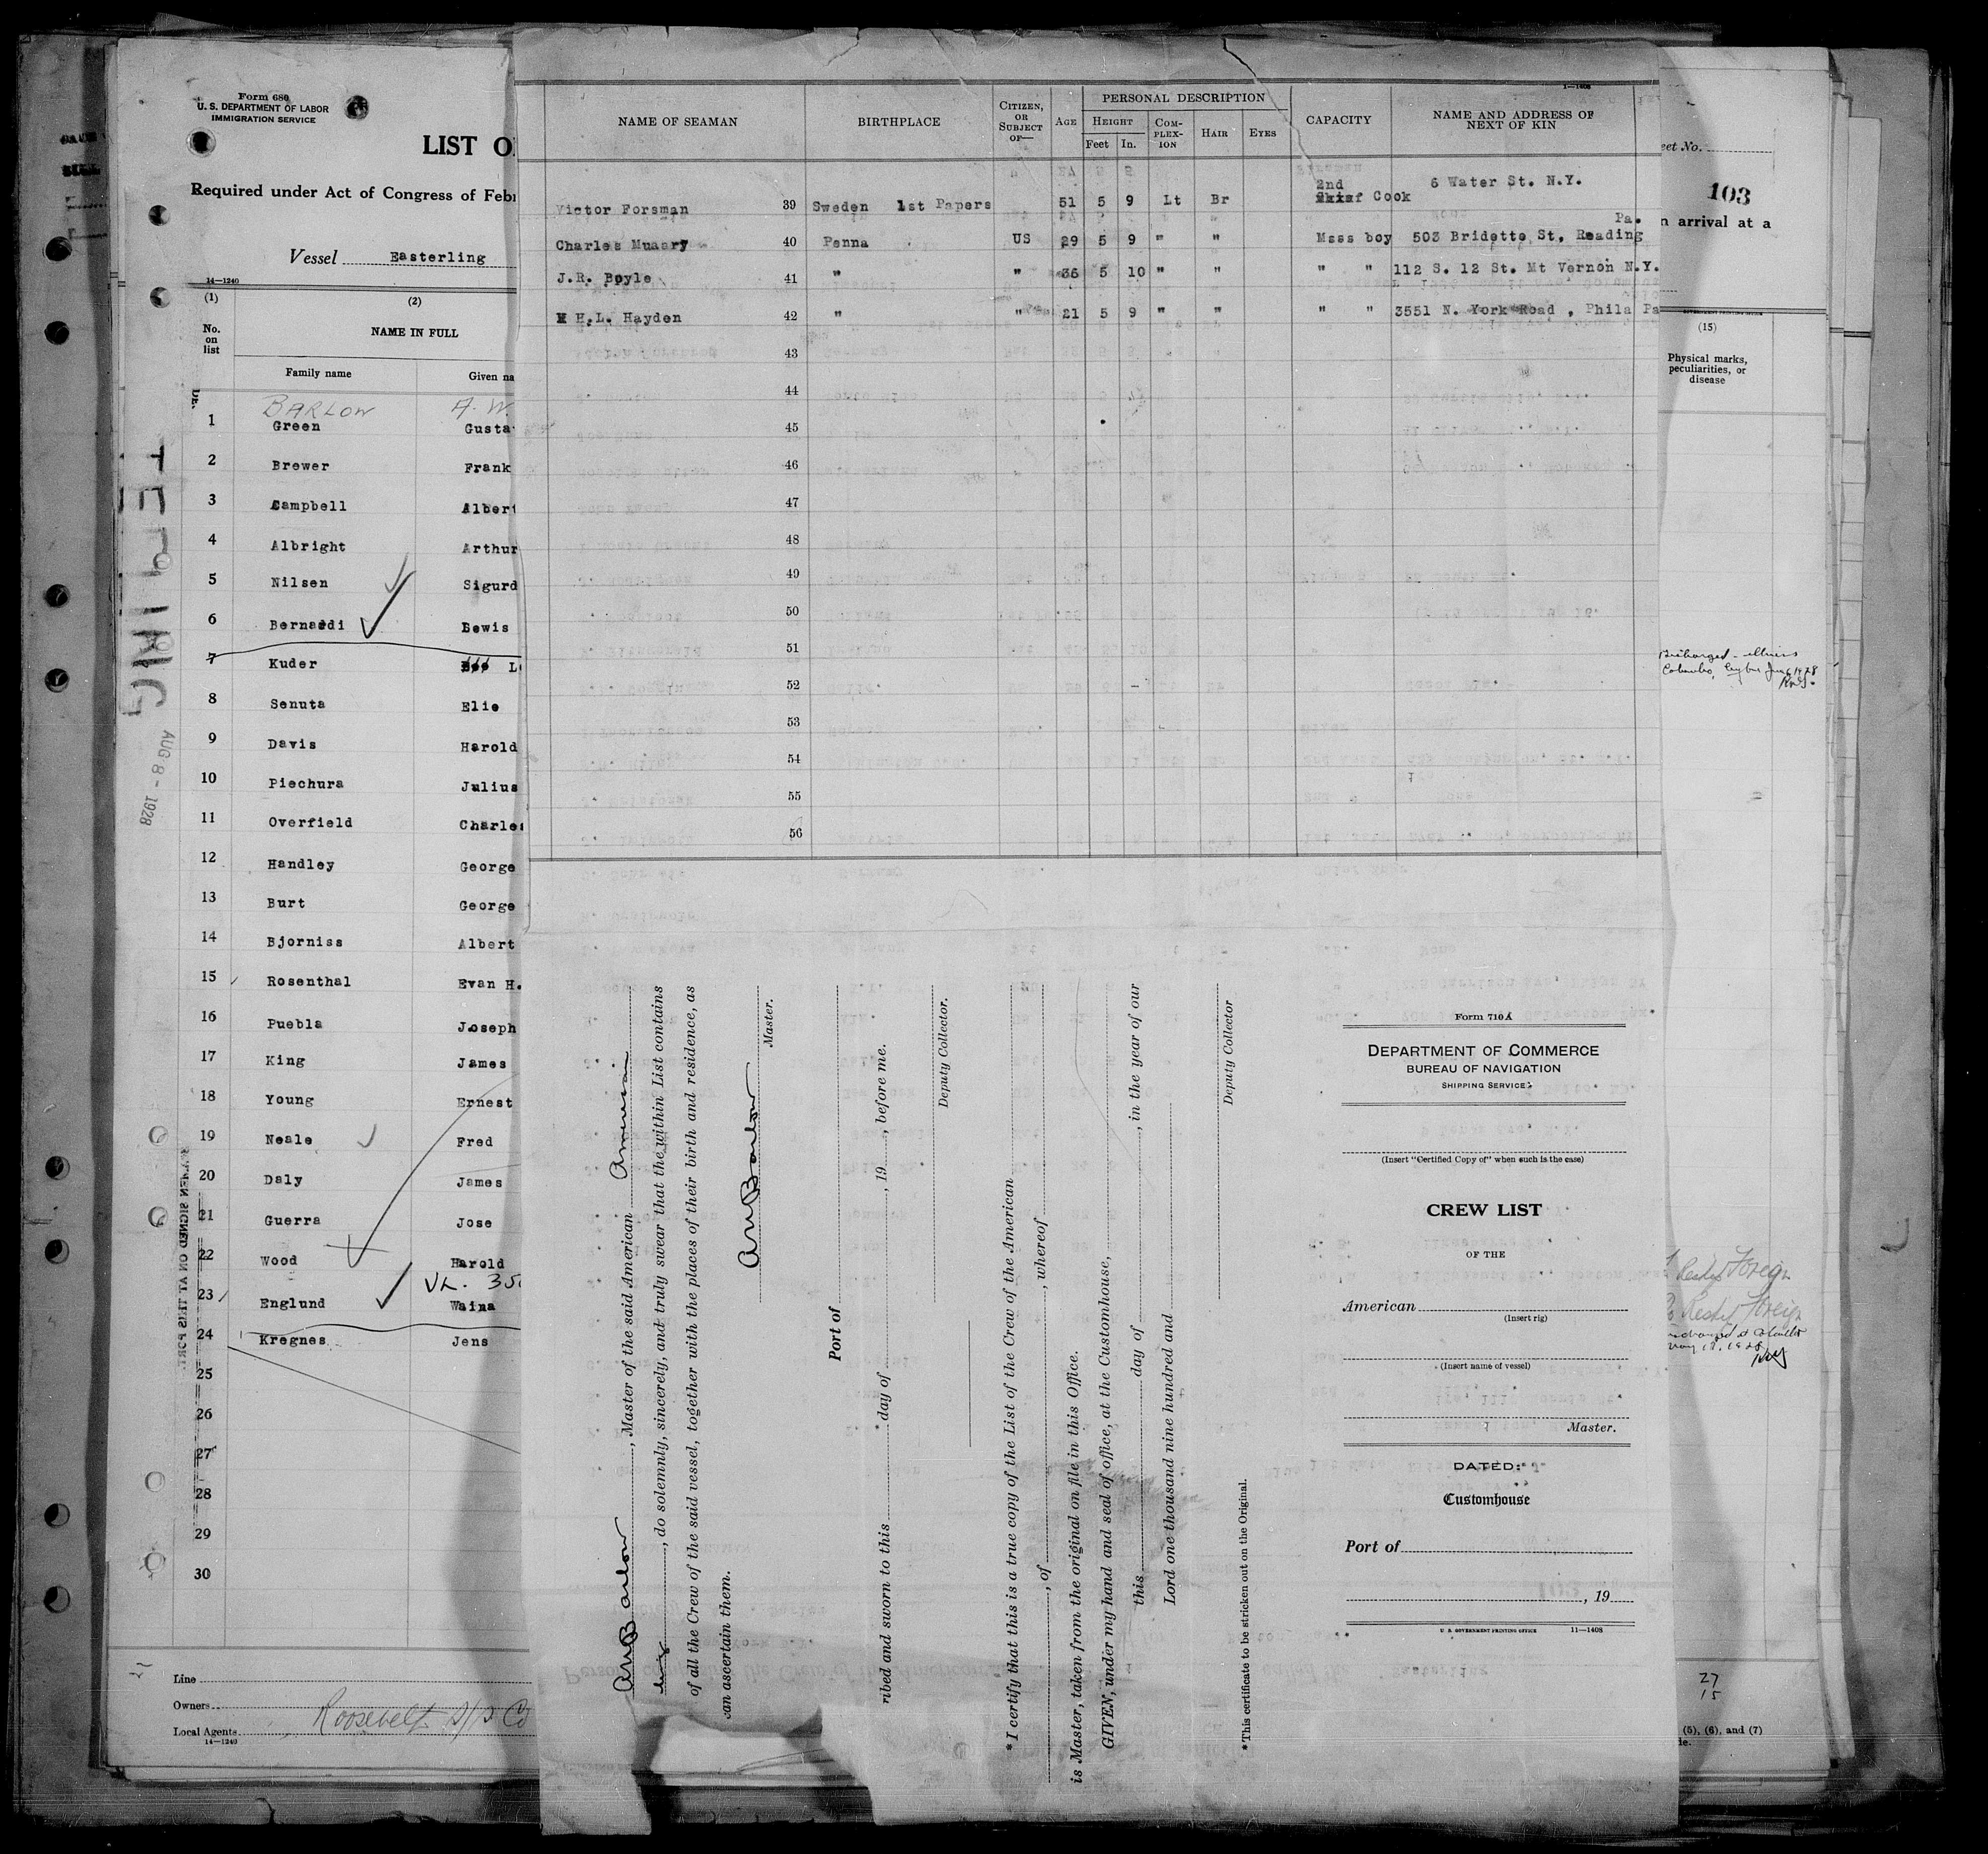 Form 680
U. S. DEPARTMENT OF LABOR
IMMIGRATION SERVICE
LIST O
Required under Act of Congress of Feb
Vessel Easterling
14—1240
(1) (2)
No. on list
NAME IN FULL
Family name Given na
BARLOW A. W.
1 Green Gusta
2 Brewer Frank
3 Campbell Albert
4 Albright Arthur
5 Nilsen Sigurd
6 Bernardi Lewis
7 Kuder L
8 Senuta Elie
9 Davis Harold
10 Piechura Julius
11 Overfield Charles
12 Handley George
13 Burt George
14 Bjorniss Albert
15 Rosenthal Evan H.
16 Puebla Joseph
17 King James
18 Young Ernest
19 Neale Fred
20 Daly James
21 Guerra Jose
22 Wood Harold
23 Englund Waina
24 Kregnes Jens
25
26
27
28
29
30
Line
Owners
Local Agents Roosevelt S/S Co
14—1240
AUG 8 - 1928
SEAMEN SIGNED ON AT THIS PORT.
1—1408
NAME OF SEAMAN
BIRTHPLACE
CITIZEN, OR SUBJECT OF—
AGE
PERSONAL DESCRIPTION
HEIGHT
Feet In.
COMPLEXION
HAIR
EYES
CAPACITY
NAME AND ADDRESS OF NEXT OF KIN
Victor Forsman 39 Sweden 1st Papers 51 5 9 Lt Br 2nd Cook 6 Water St. N.Y.
Charles Muasry 40 Penna US 29 5 9 " " Msss boy 503 Bridette St, Reading Pa.
J.R. Boyle 41 " " 36 5 10 " " " " 112 S. 12 St. Mt Vernon N.Y.
H.L. Hayden 42 " " 21 5 9 " " " " 3551 N. York Road , Phila Pa
43
44
45
46
47
48
49
50
51
52
53
54
55
56
A W Barlow, Master of the said American American
, do solemnly, sincerely, and truly swear that the within List contains
of all the Crew of the said vessel, together with the places of their birth and residence, as
can ascertain them.
A W Barlow
Master.
Port of
ribed and sworn to this day of , 19 , before me.
Deputy Collector.
* I certify that this is a true copy of the List of the Crew of the American
, of , whereof
is Master, taken from the original on file in this Office.
GIVEN, under my hand and seal of office, at the Customhouse,
this day of , in the year of our
Lord one thousand nine hundred and
Deputy Collector
* This certificate to be stricken out on the Original.
Form 710A
DEPARTMENT OF COMMERCE
BUREAU OF NAVIGATION
SHIPPING SERVICE
(Insert "Certified Copy of" when such is the case)
CREW LIST
OF THE
American
(Insert rig)
(Insert name of vessel)
Master.
DATED:
Customhouse
Port of
, 19
U. S. GOVERNMENT PRINTING OFFICE 11—1408
eet No.
103
n arrival at a
(15)
Physical marks, peculiarities, or disease
Discharged - illness
Colombo, Ceylon
Foreign
Foreign
27
15
(5), (6), and (7)